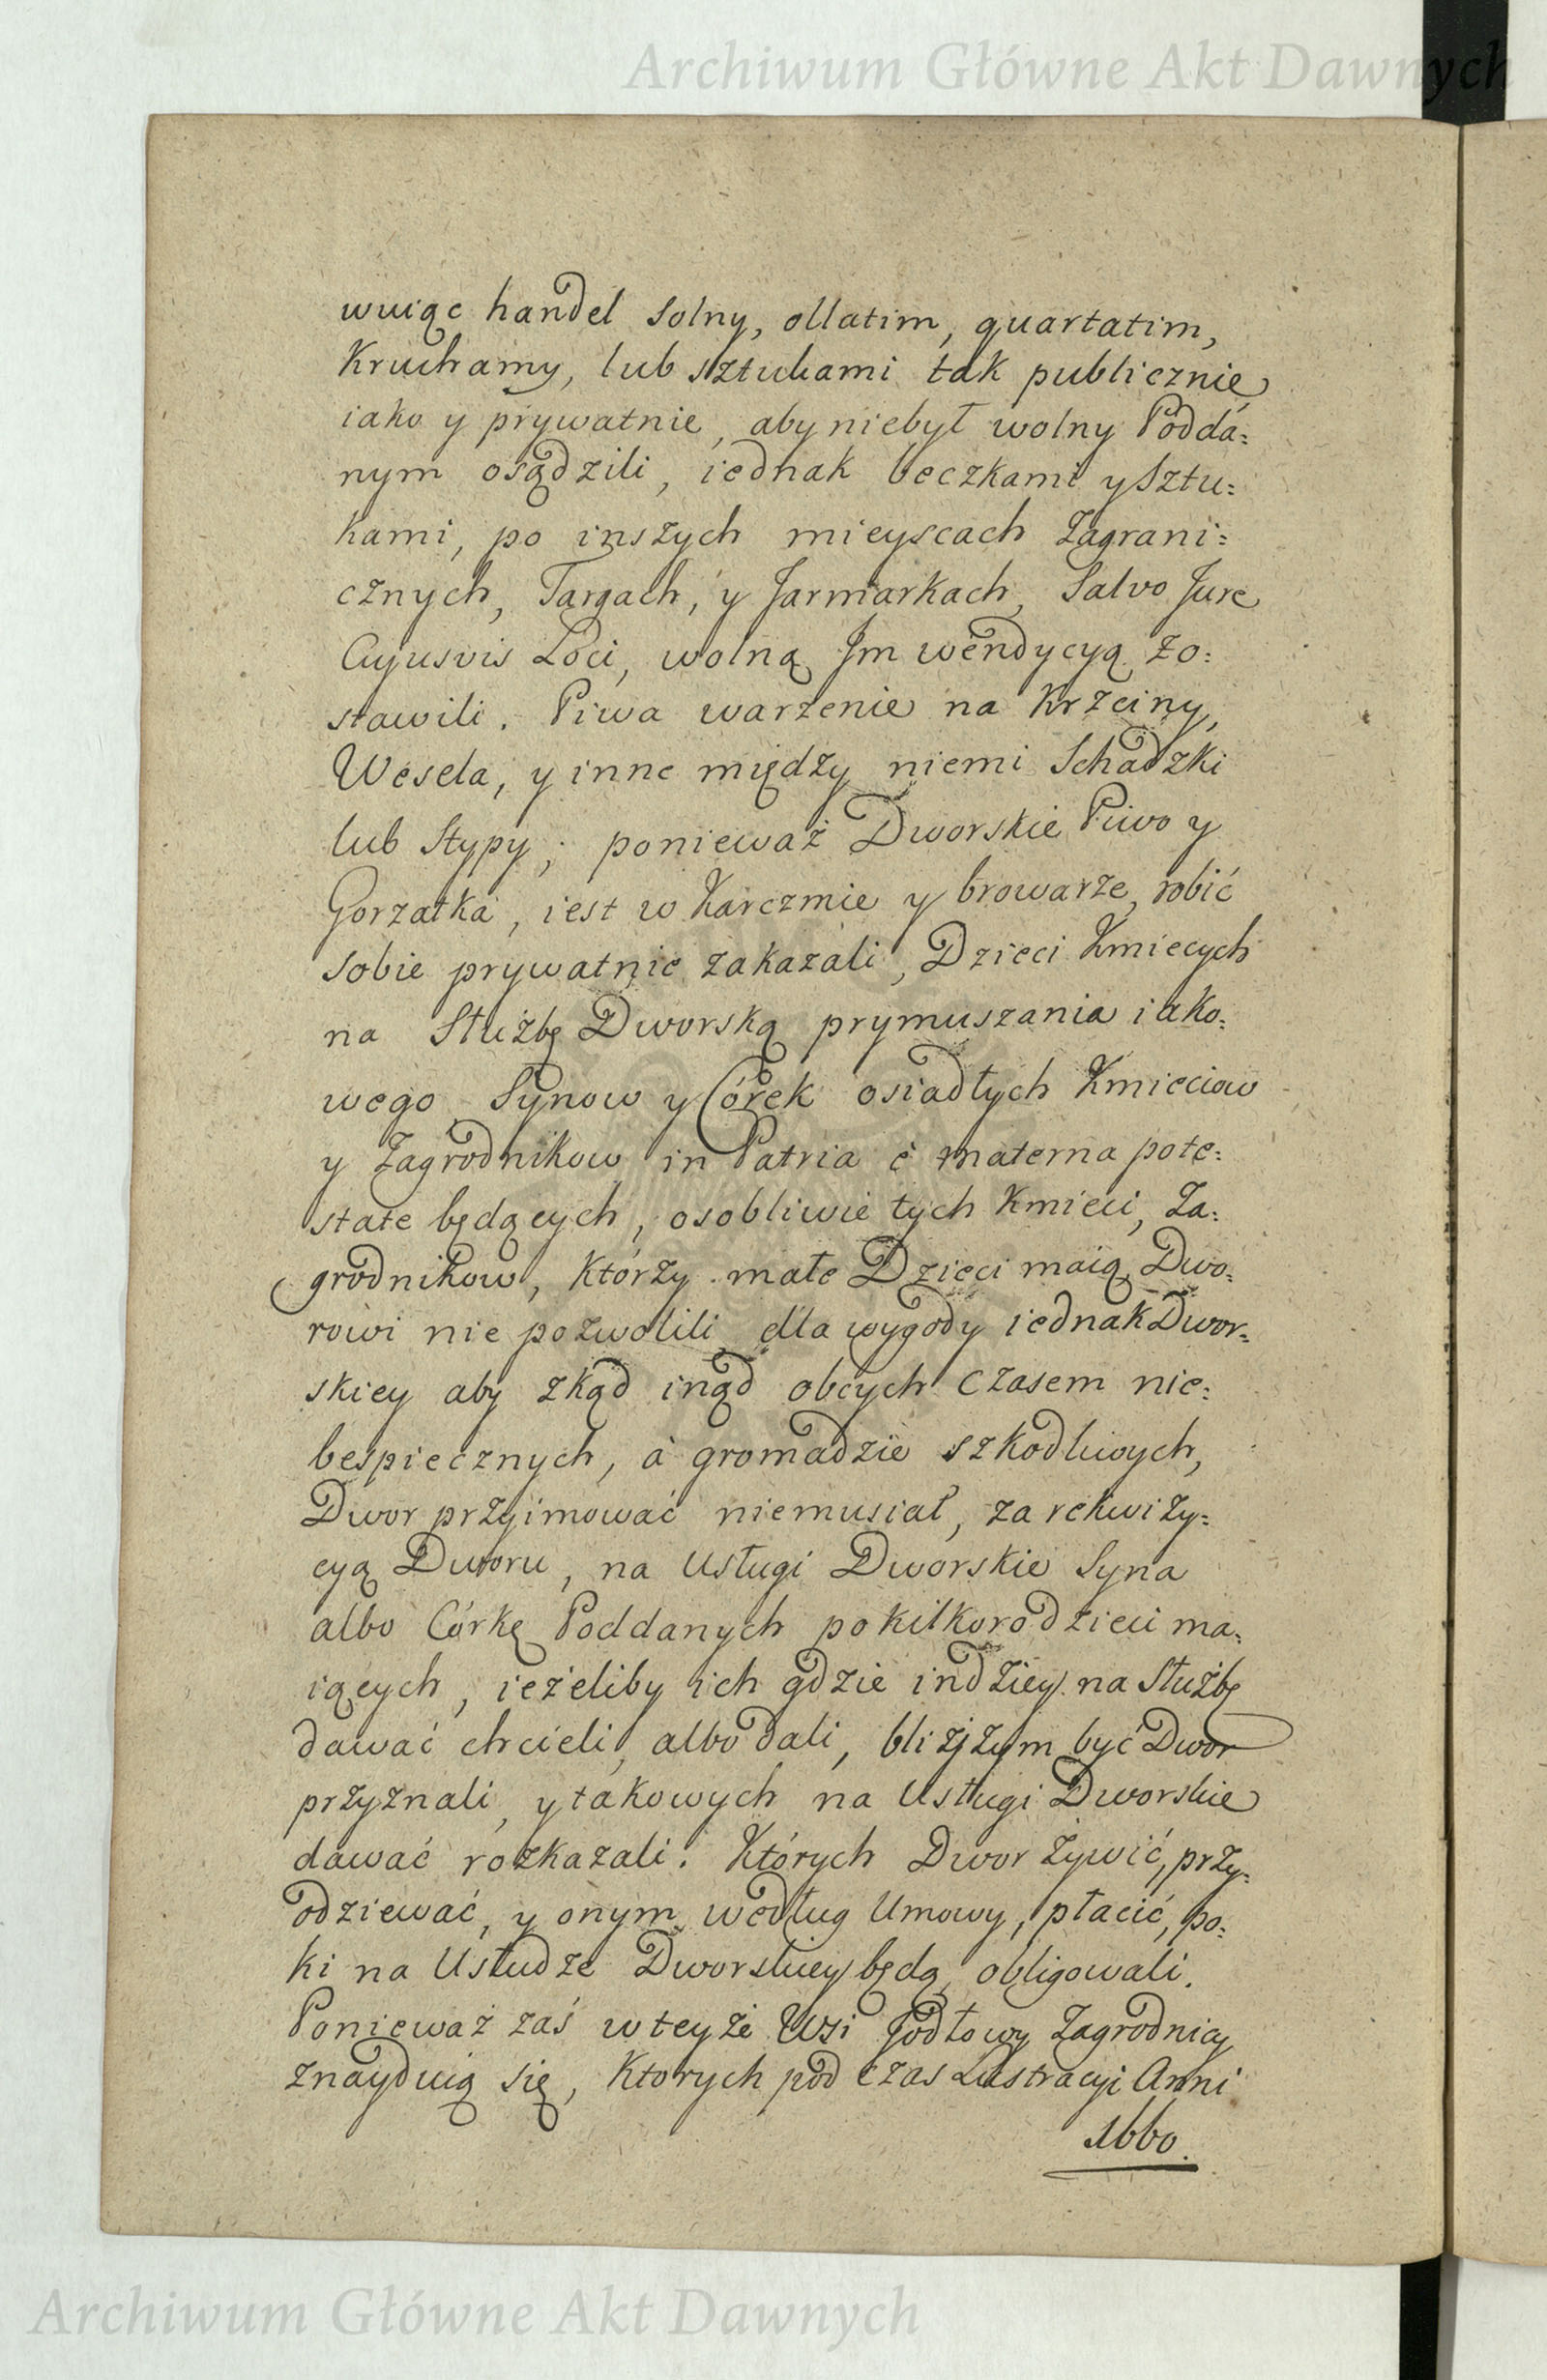 Archiwum Główne Akt Dawnych
wuiąc handel solny, ollatim, quartatim,
Kruchamy, lub sztukami tak publicznie
iako y prywatnie, aby niebył wolny Podda=
nym osądzili, iednak beczkami y Sztu=
kami, po inszych mieyscach Zagrani=
cznych, Targach, y Jarmarkach, Salvo Jure
Cujusvis Loci, wolną Jm wendycyą zo=
stawili. Piwa warzenie na Krzciny,
Wesela, y inne między niemi Schadzki
lub Stypy; ponieważ Dworskie Piwo y
Gorzałka, iest w Karczmie y browarze, robić
sobie prywatnie zakazali, Dzieci Kmiecych
na Służbę Dworską prymuszania iako=
wego Synow y Córek osiadłych Kmieciow
y Zagrodnikow in Patria è materna pote=
state będących, osobliwie tych Kmieci, Za=
grodnikow, Którzy małe Dzieci maią, Dwo=
rowi nie pozwolili, dla wygody iednak Dwor=
skiey aby zkąd inąd obcych czasem nie=
bespiecznych, à gromadzie szkodliwych,
Dwor przyimować niemusiał, za rekwizy=
cyą Dworu, na Usługi Dworskie Syna
albo Córkę Poddanych po kilkoro dzieci ma=
iących, ieżeliby ich gdzie indziey na Służbę
dawać chcieli, albo dali, bliżjzym być Dwor
przyznali, y takowych na Usługi Dworskie
dawać rozkazali. Których Dwor żywić, przy=
odziewać, y onym według Umowy, płacić, po=
ki na Usłudze Dworskiey będą, obligowali.
Ponieważ zaś w teyże Wsi Jodłowy Zagrodnicy
znayduią się, Ktorych pod czas Lustracyi Anni
1660.
Archiwum Główne Akt Dawnych